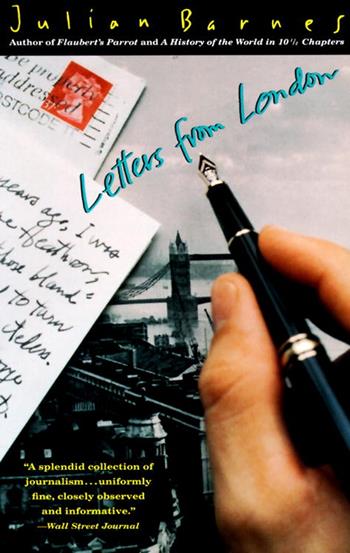 Julian Barnes
Author of Flaubert's Parrot and A History of the World in 10½ Chapters
Be properly
addressed
POSTCODE IT
Letters from London
years ago, I was
to turn
"A splendid collection of
journalism...uniformly
fine, closely observed
and informative."
—Wall Street Journal